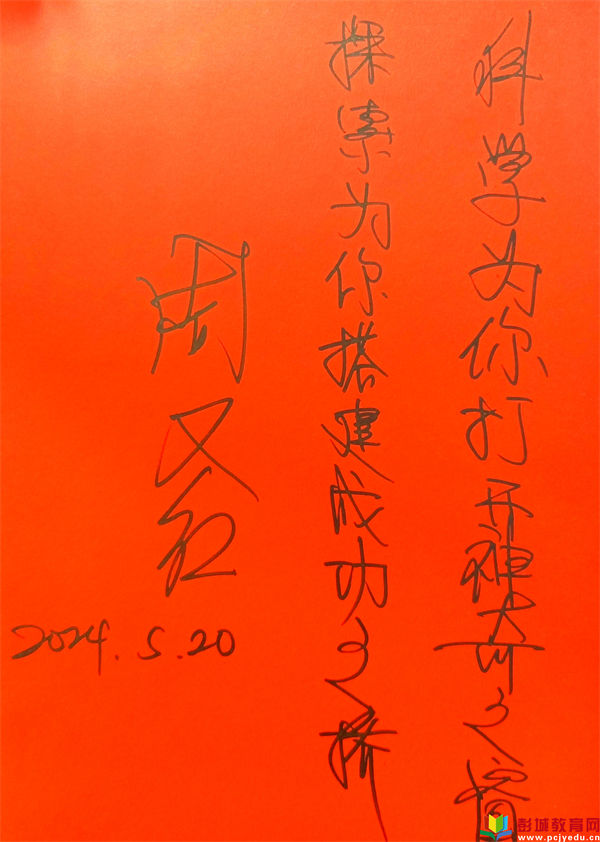 科学为你打开神奇之窗
探索为你搭建成功之桥
周又红
2024.5.20
彭城教育网
www.pcjyedu.cn